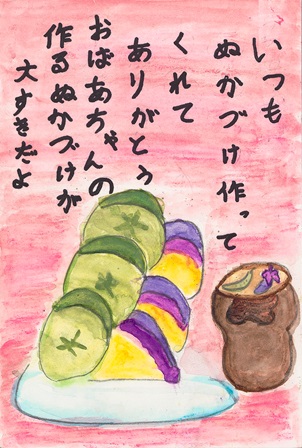 いつも
ぬかづけ作って
くれて
ありがとう
おばあちゃんの
作るぬかづけが
大すきだよ